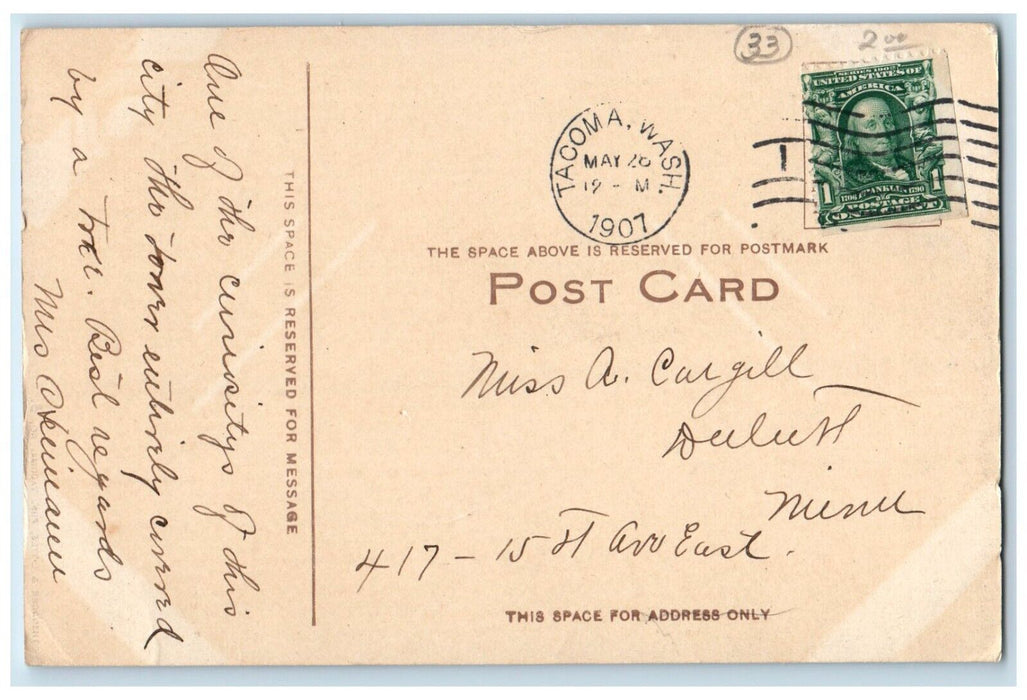 33
2 00
SERIES 1902
UNITED STATES OF
AMERICA
1 1706 FRANKLIN 1790 1
POSTAGE
ONE CENT
TACOMA, WASH.
MAY 26
12 - M
1907
1
THE SPACE ABOVE IS RESERVED FOR POSTMARK
POST CARD
THIS SPACE IS RESERVED FOR MESSAGE
One of the curiositys of this
city the tower entirely covered
by a tree. Best regards
Mrs
Miss A. Cargill
Duluth
Minn
417 - 15 St Ave East.
THIS SPACE FOR ADDRESS ONLY